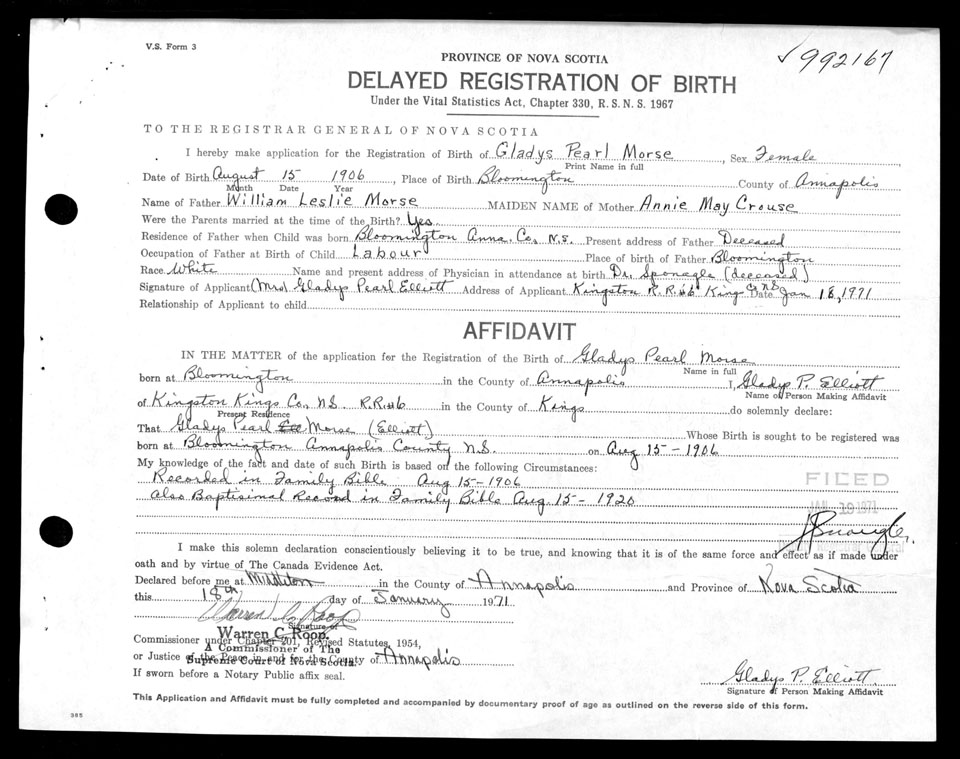 V.S. Form 3
992167
PROVINCE OF NOVA SCOTIA
DELAYED REGISTRATION OF BIRTH
Under the Vital Statistics Act, Chapter 330, R.S.N.S. 1967
TO THE REGISTRAR GENERAL OF NOVA SCOTIA
I hereby make application for the Registration of Birth of Gladys Pearl Morse, Sex Female
Print Name in full
Date of Birth August 15 1906, Place of Birth Bloomington County of Annapolis
Month Date Year
Name of Father William Leslie Morse MAIDEN NAME of Mother Annie May Crouse
Were the Parents married at the time of the Birth? Yes
Residence of Father when Child was born Bloomington Anna. Co, N.S. Present address of Father Deceased
Occupation of Father at Birth of Child Labour Place of birth of Father Bloomington
Race White Name and present address of Physician in attendance at birth Dr. Sponagle (deceased)
Signature of Applicant (Mrs) Gladys Pearl Elliott Address of Applicant Kingston R.R.#6 King Co NS Date Jan 18, 1971
Relationship of Applicant to child
AFFIDAVIT
IN THE MATTER of the application for the Registration of the Birth of Gladys Pearl Morse
Name in full
born at Bloomington in the County of Annapolis I, Gladys P. Elliott
Name of Person Making Affidavit
of Kingston Kings Co, N.S. R.R.#6 in the County of Kings do solemnly declare:
Present Residence
That Gladys Pearl Morse (Elliott) Whose Birth is sought to be registered was
born at Bloomington Annapolis County N.S. on Aug 15 - 1906
My knowledge of the fact and date of such Birth is based on the following Circumstances:
Recorded in Family Bible Aug 15 - 1906
FILED
also Baptisimal Record in Family Bible Aug. 15 - 1920
JAN 19 1971
I make this solemn declaration conscientiously believing it to be true, and knowing that it is of the same force and effect as if made under
oath and by virtue of The Canada Evidence Act.
Declared before me at Middleton in the County of Annapolis and Province of Nova Scotia
this 18th day of January 1971
Warren C. Roop
Signature of
Warren C. Roop.
Commissioner under Chapter 201, Revised Statutes, 1954,
A Commissioner of The
or Justice of the Peace in and for the County of Annapolis
Supreme Court of Nova Scotia
If sworn before a Notary Public affix seal.
Gladys P. Elliott
Signature of Person Making Affidavit
This Application and Affidavit must be fully completed and accompanied by documentary proof of age as outlined on the reverse side of this form.
385